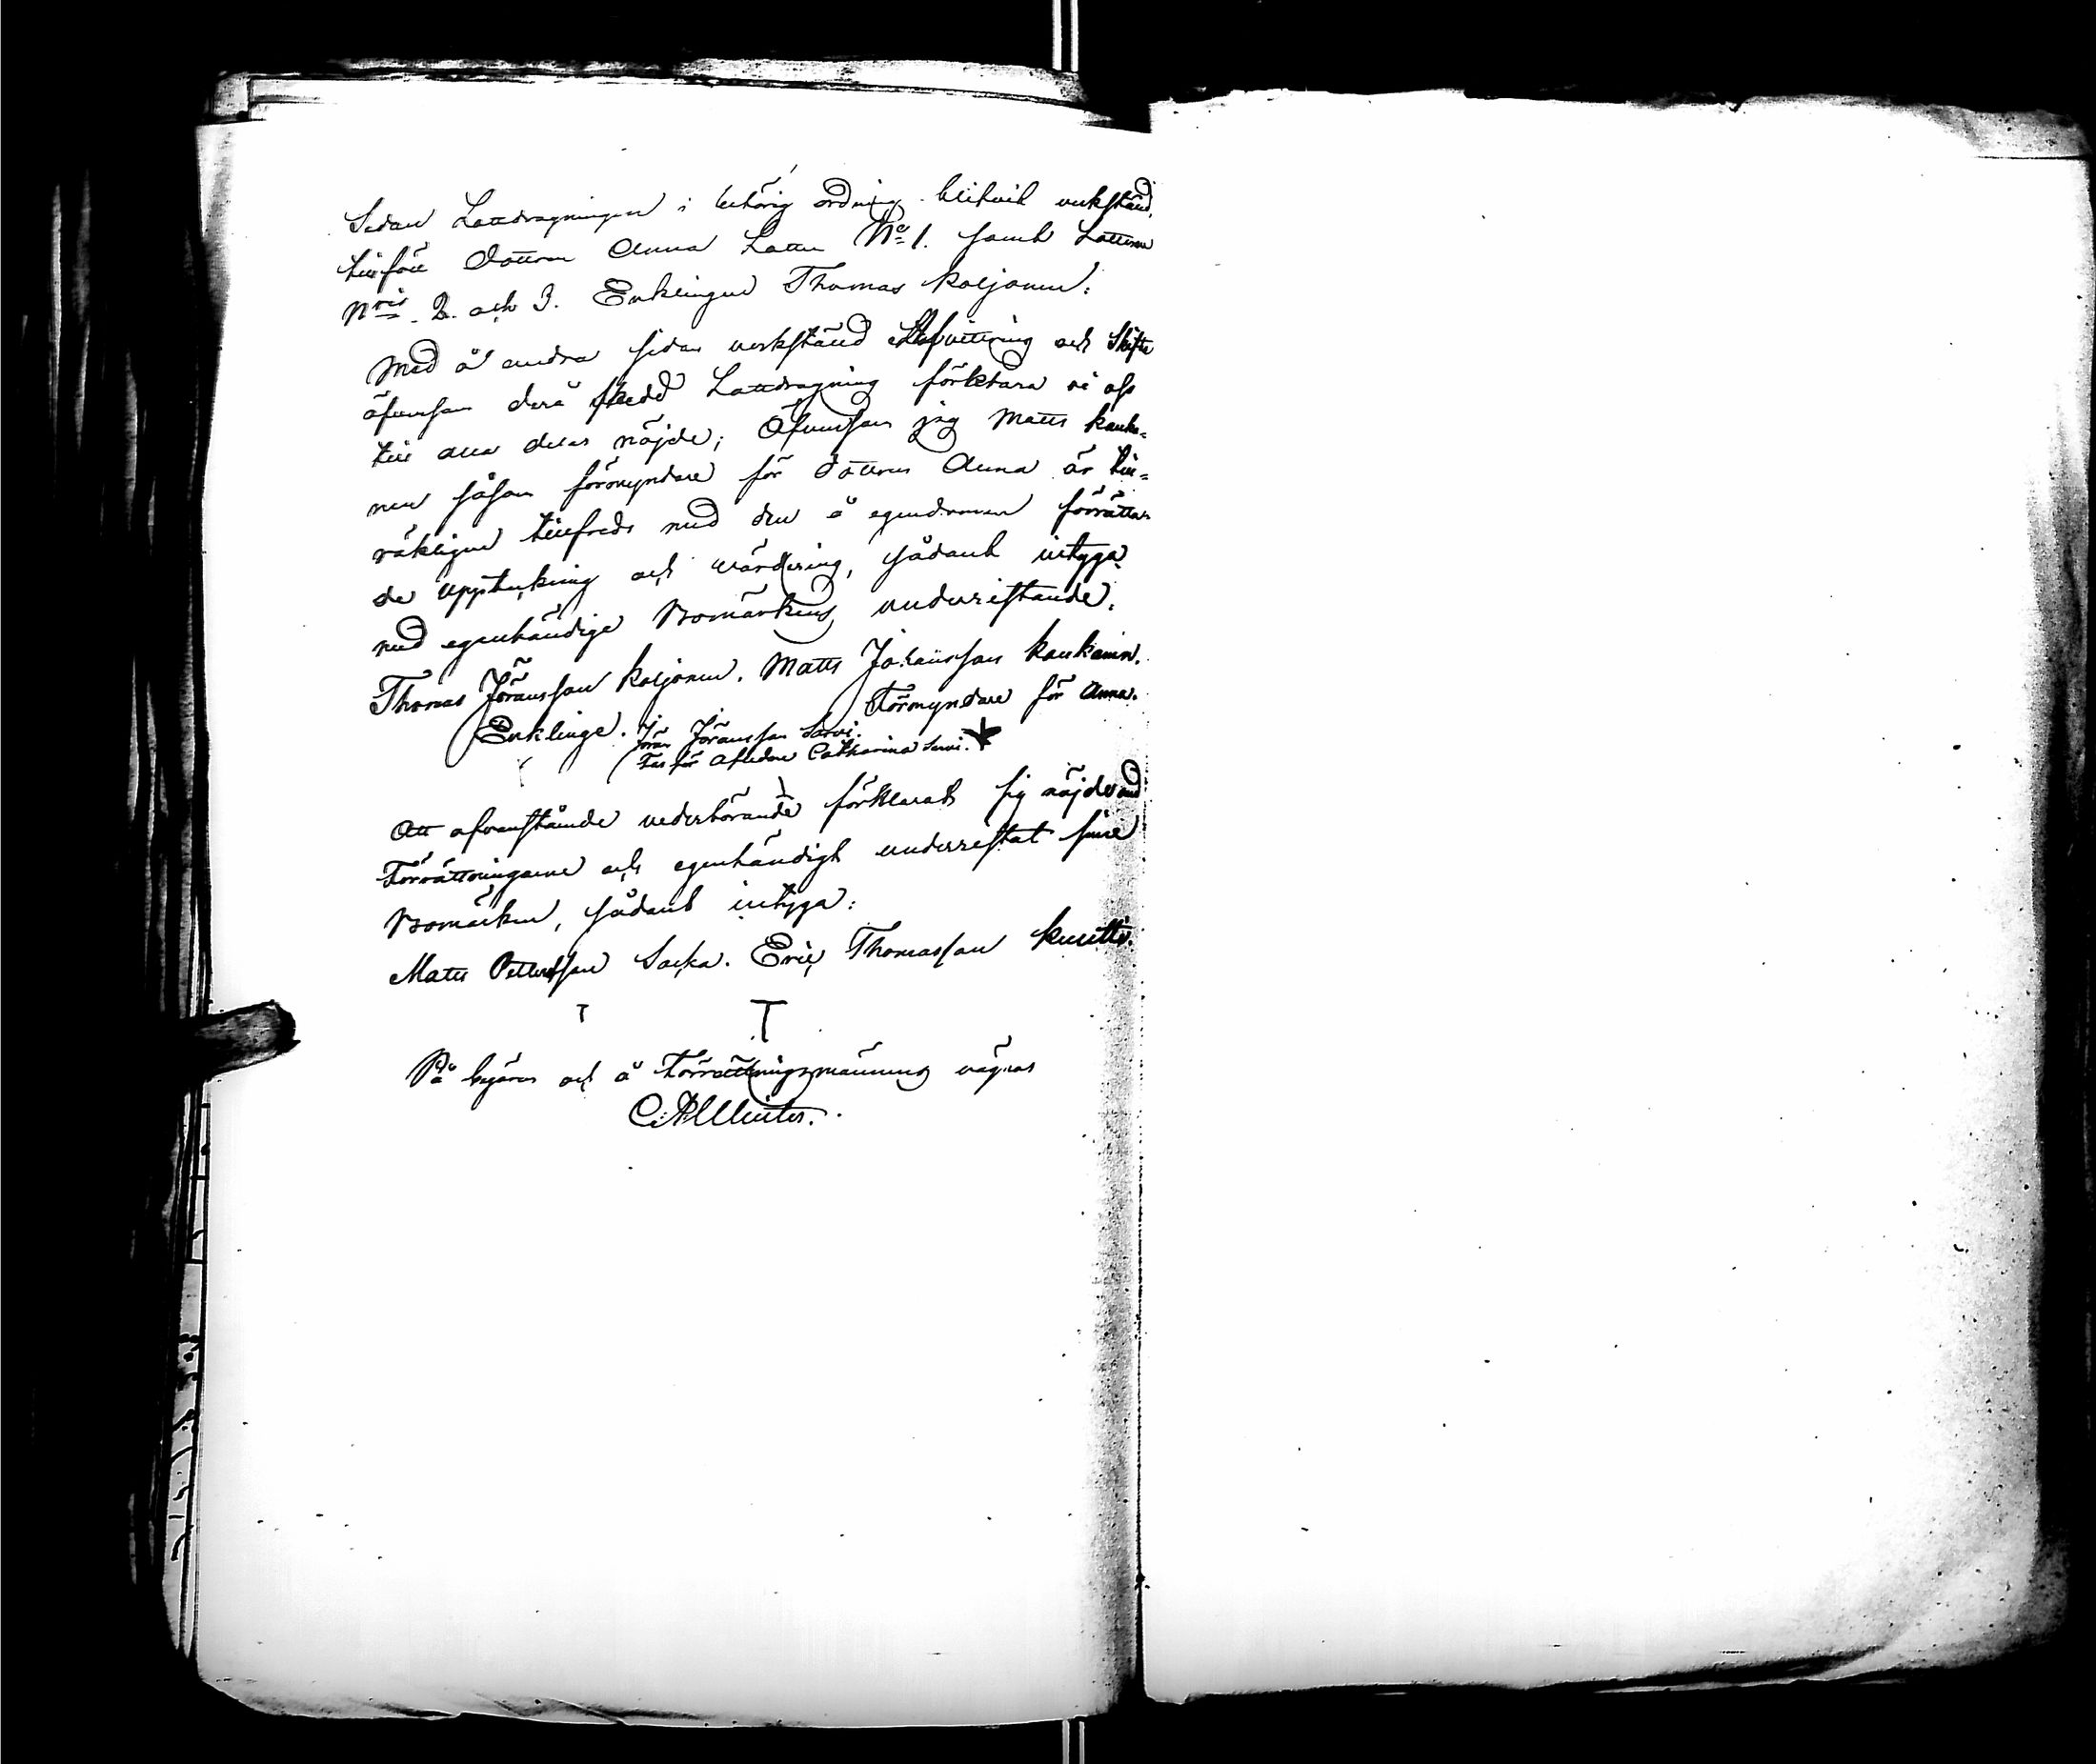 Sedan Lottdragningen i behörig ordning blifvit verkställd,
tillföll Dottren Anna Lotten No 1. samt Lotterna
Nris 2. och 3. Enklingen Thomas Koljonen.
Med å andra sidan verkställd Afvittring och Skifte
äfvensom derå skedd Lottdragning förklara vi oss
till alla delar nöjde; Äfvensom jag Matts Kauka-
nen såsom förmyndare för dottren Anna är till-
räkligen tillfreds med den å egendomen förrätta-
de uppteckning och värdering, sådant intyga
med egenhändige Bomärkens underristande.
Thomas Jöransson Koljonen. Matts Johansson Kaukainen.
Enklinge. Förmyndare för Anna.
Jöran Jöransson Sarvi.
Far för Aflidne Catharina Sarvi.
Att ofvanstående vederbörande förklarat sig nöjde med
Förrättningarne och egenhändigt underristat sine
Bomärken, sådant intyga:
Matts Pettersson Eric Thomasson
På begäran och å Förrättningsmännens vägnar